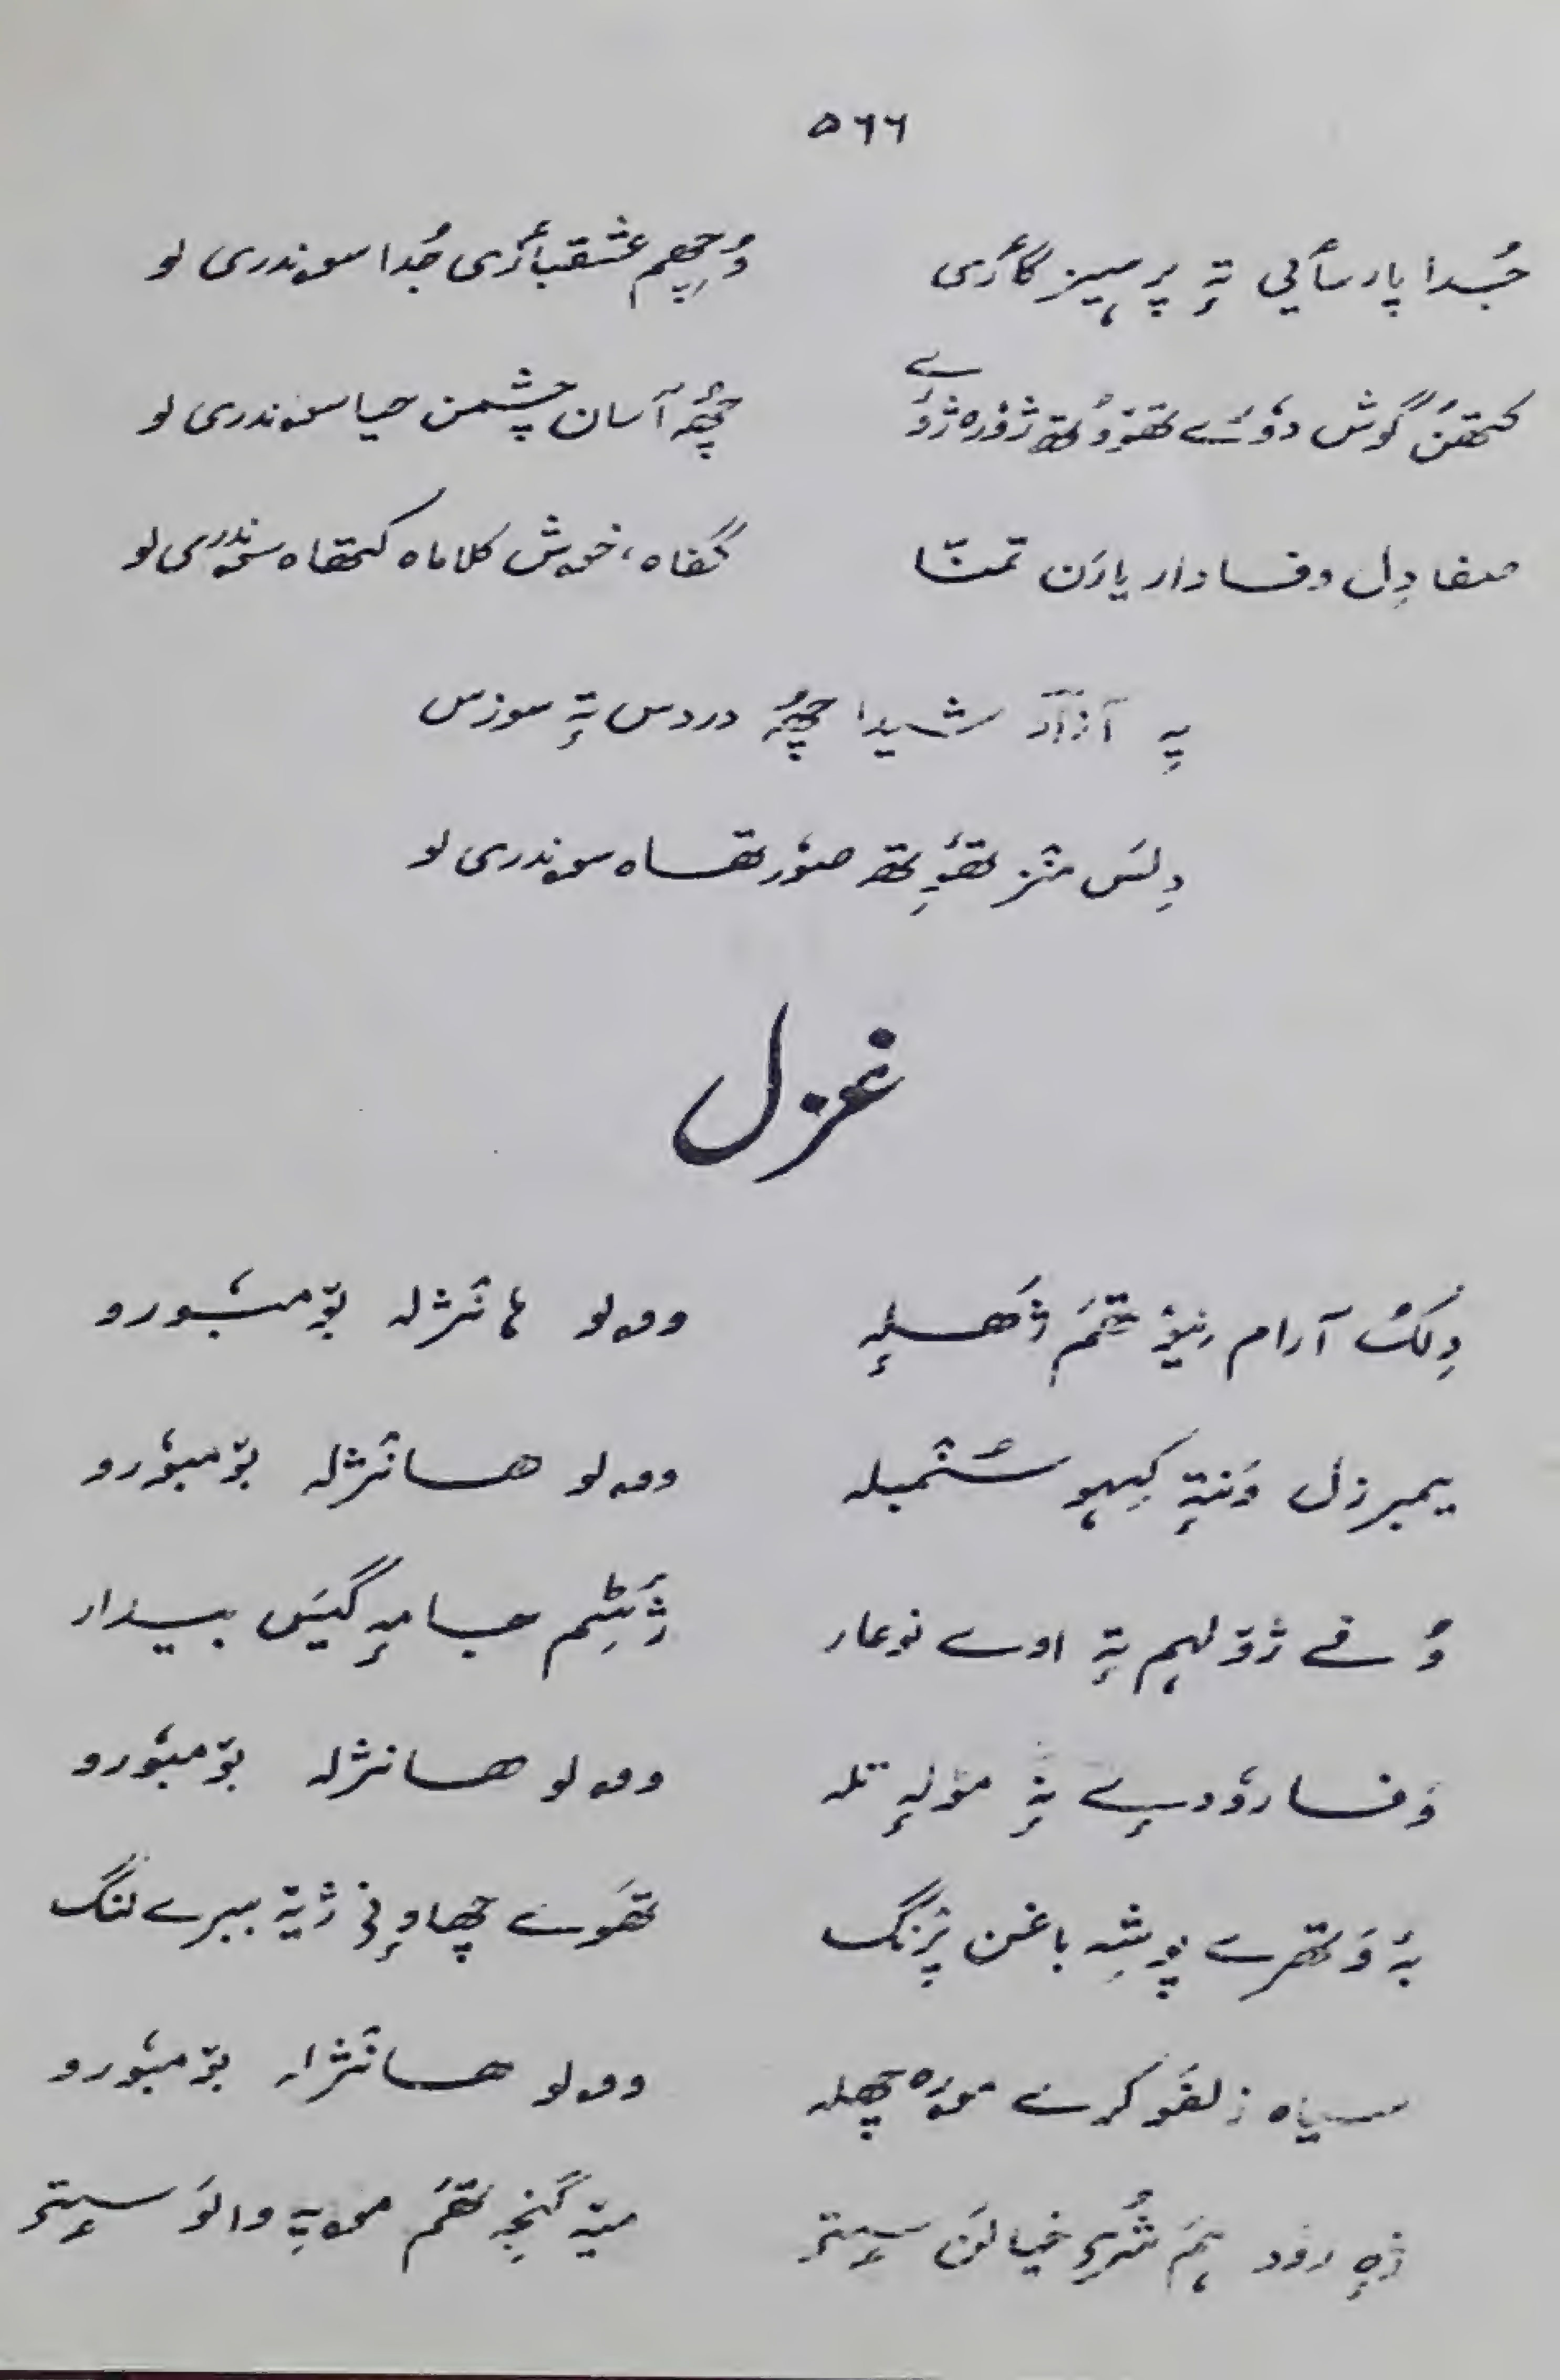 ۵۶۶
جُدا پارسٲیی تہٕ پرہیز گٲری وُچھِم عشقبٲزی جُدا سوندری لو
کتھن گوش دؤرے تھوٕوُتھ ژۆرہ چھُہ آسان چشمن حیا سوندری لو
صفا دِل وفادار یارَن تمنّا گفاہ، خوش کلاماہ کتھاہ سوندری لو
یہِ آزاد شیدا چھُہ دردس تہٕ سوزس
دِلَس منٛز تھٔوِتھ صوٗرتھاہ سوندری لو
غزل
دِلُک آرام نیوٗتھَم ژھلہٕ وولو ہانٛژلہ بۆمبوٗرو
یمبرزل ونتہٕ کیہو سنٛبلہ وولو ہانٛژلہ بۆمبوٗرو
وُنے ژۆلہم تہٕ اوسے نوعار ژٔٹِم جامہٕ گیَس بیدار
وفا روٗدے نہٕ مولہٕ تلہ وولو ہانژلہ بۆمبوٗرو
بہٕ وَتھرے پوشہِ باغن پرٛنگ تھَوے چھاونۍ ژیتہٕ ببرے لنگ
سیاہ زلفو کرے مورہ چھلہ وولو ہانٛژلہ بۆمبوٗرو
ژہٕ روٗد ہم شُرۍ خیالَن سیٖتۍ میہ گنجہ تھم مویہِ والَو سیٖتۍ